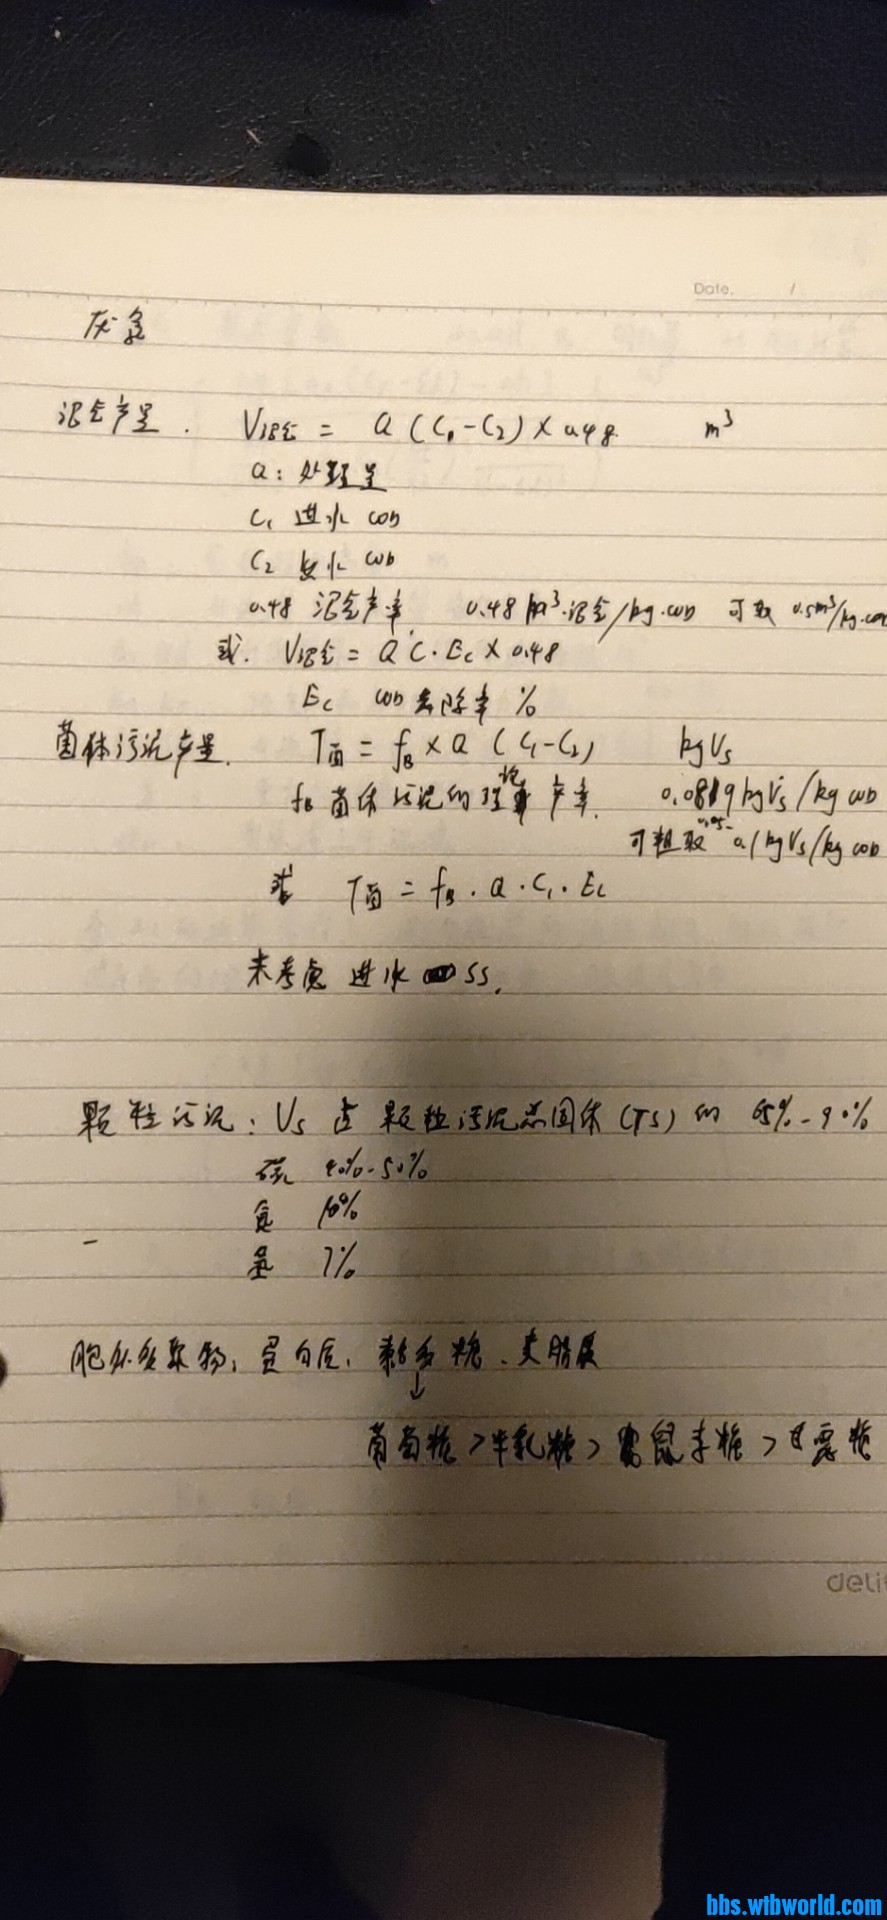 Date. /
厌氧
沼气产量. V沼气 = Q (C₁-C₂) × 0.48 m³
Q: 处理量
C₁ 进水 COD
C₂ 出水 COD
0.48 沼气产率, 0.48 m³·沼气/kg·COD 可取 0.5m³/kg·COD
或. V沼气 = Q C·Ec × 0.48
Ec COD去除率 %
菌体污泥产量. T菌 = fB × Q (C₁-C₂) kgVs
fB 菌体污泥的理论产率. 0.0819kgVs/kg COD
可粗取 0.05-0.1kgVs/kg COD
或 T菌 = fB · Q · C₁ · Ec
未考虑 进水 SS.
颗粒污泥: Vs 占 颗粒污泥总固体 (TS) 的 65%-90%
碳 40%-50%
氮 10%
氢 7%
胞外多聚物: 蛋白质、黏多糖、类脂质
↓
葡萄糖 > 半乳糖 > 鼠李糖 > 甘露糖
deli
bbs.wtbworld.com